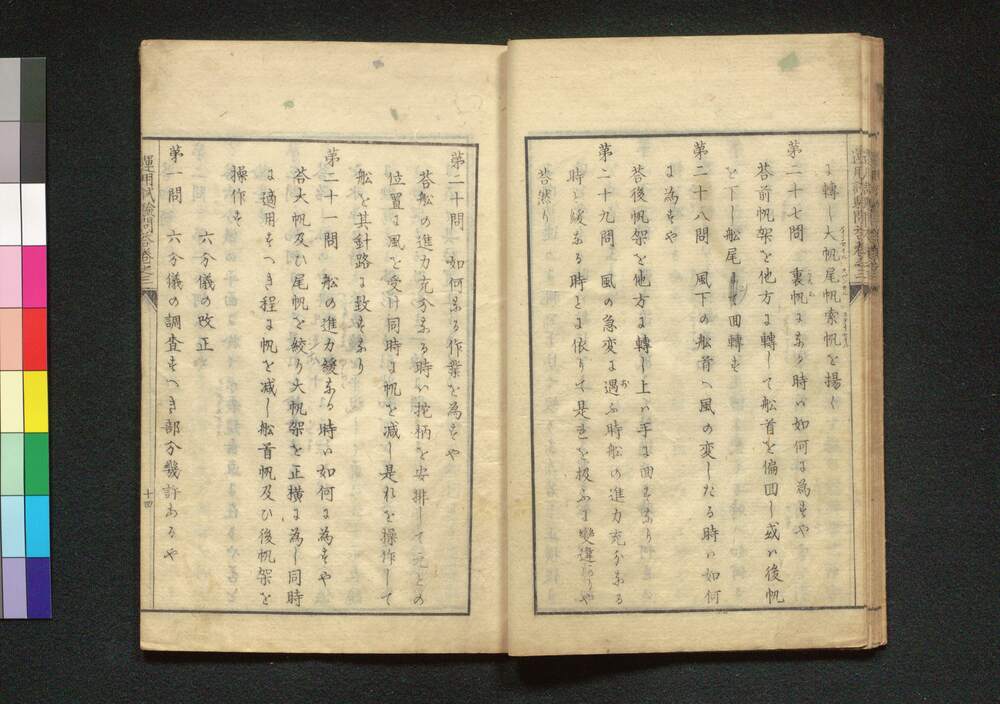 に轉し大帆尾帆索帆を揚く
第二十七問　裏帆になる時ハ如何に為すや
荅前帆架を他方に轉して舩首を偏囬し或ハ後帆
を下し舩尾にて囬轉す
第二十八問　風下の舩首へ風の変したる時ハ如何
に為すや
荅後帆架を他方に轉し上ハ手に囬すなり
第二十九問　風の急変に遇ふ時舩の進力充分なる
時と緩なる時とに依りて是を扱ふに違ありや
荅然り
第二十問　如何なる作業を為すや
荅舩の進力充分なる時ハ柁柄を安排して元との
位置に風を受け同時に帆を減し是れを操作して
舩を其針路に致すなり
第二十一問　舩の進力緩なる時ハ如何に為すや
荅大帆及ひ尾帆を絞り大帆架を正横に為し同時
に適用すへき程に帆を減し舩首帆及ひ後帆架を
操作す
六分儀の改正
第一問　六分儀の調査すへき部分幾許あるや
運用試驗問荅巻之三
十四